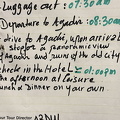 Luggage out : 07:30am
Departure to Agadir : 08:30am
drive to Agadir, upon arrival
stop for a panoramic view
and ruins of the old city
check in the Hotel 01:00pm
afternoon at leisure
Lunch & Dinner on your own
Your Tour Director